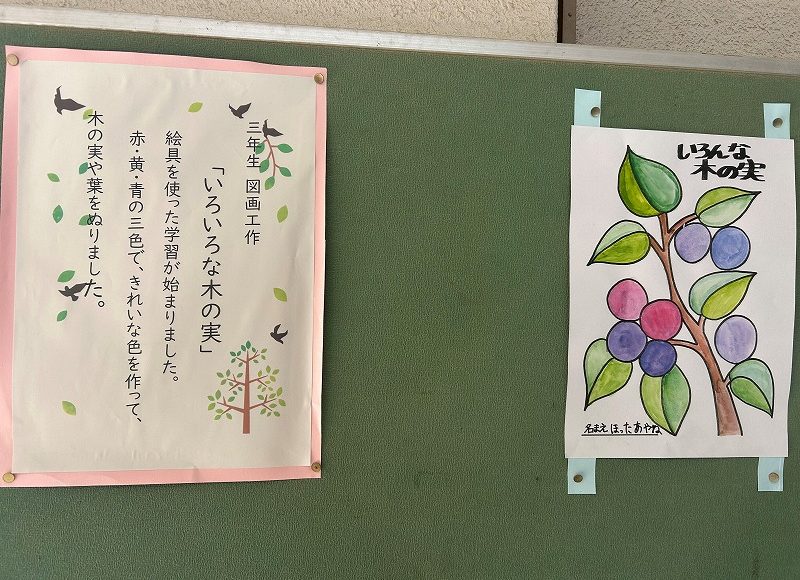 三年生 図画工作
「いろいろな木の実」
絵具を使った学習が始まりました。
赤・黄・青の三色で、きれいな色を作って、
木の実や葉をぬりました。
いろんな
木の実
名まえ ほったあやね